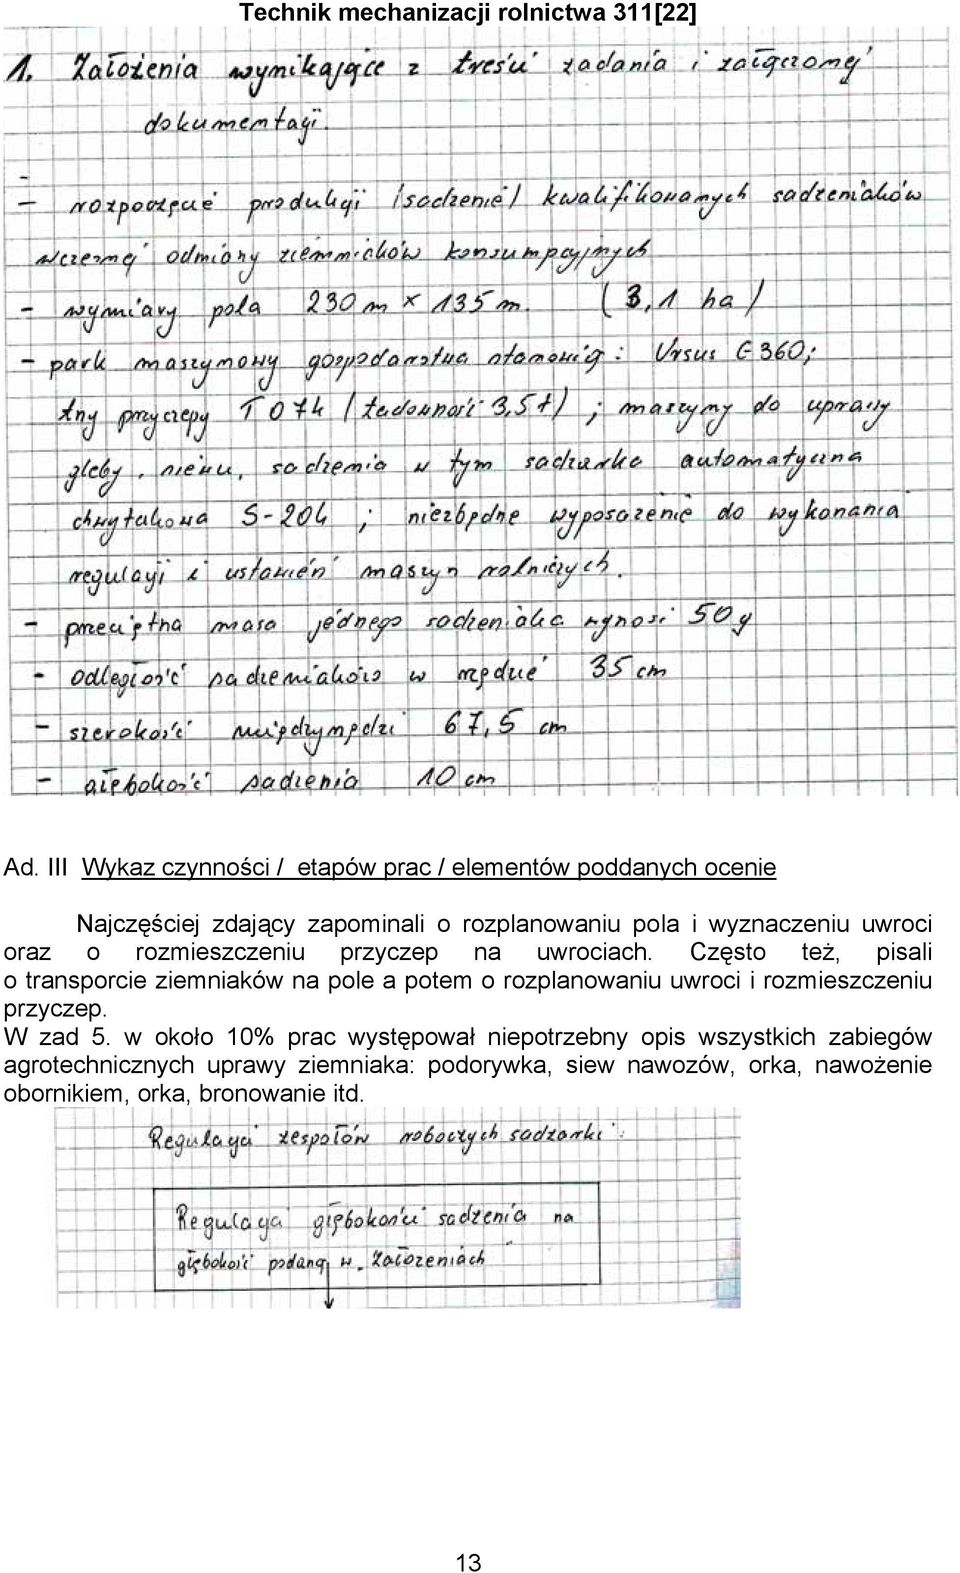 Technik mechanizacji rolnictwa 311[22]
1. Założenia wynikające z treści zadania i załączonej
dokumentacji.
-
- rozpoczęcie produkcji /sadzenie/ kwalifikowanych sadzeniaków
wczesnej odmiany ziemniaków konsumpcyjnych
- wymiary pola 230 m x 135 m. (3,1 ha)
- park maszynowy gospodarstwa stanowią: Ursus C-360;
trzy przyczepy T 074 /ładowność 3,5t/ ; maszyny do uprawy
gleby, siewu, sadzenia w tym sadzarka automatyczna
chwytakowa S-204 ; niezbędne wyposażenie do wykonania
regulacji i ustawień maszyn rolniczych.
- przeciętna masa jednego sadzeniaka wynosi 50g
- odległość sadzeniaków w rzędzie 35 cm
- szerokość międzyrzędzi 67,5 cm
- głębokość sadzenia 10 cm
Ad. III Wykaz czynności / etapów prac / elementów poddanych ocenie
Najczęściej zdający zapominali o rozplanowaniu pola i wyznaczeniu uwroci
oraz o rozmieszczeniu przyczep na uwrociach. Często też, pisali
o transporcie ziemniaków na pole a potem o rozplanowaniu uwroci i rozmieszczeniu
przyczep.
W zad 5. w około 10% prac występował niepotrzebny opis wszystkich zabiegów
agrotechnicznych uprawy ziemniaka: podorywka, siew nawozów, orka, nawożenie
obornikiem, orka, bronowanie itd.
Regulacja zespołów roboczych sadzarki:
Regulacja głębokości sadzenia na
głębokość podaną w „Założeniach
13